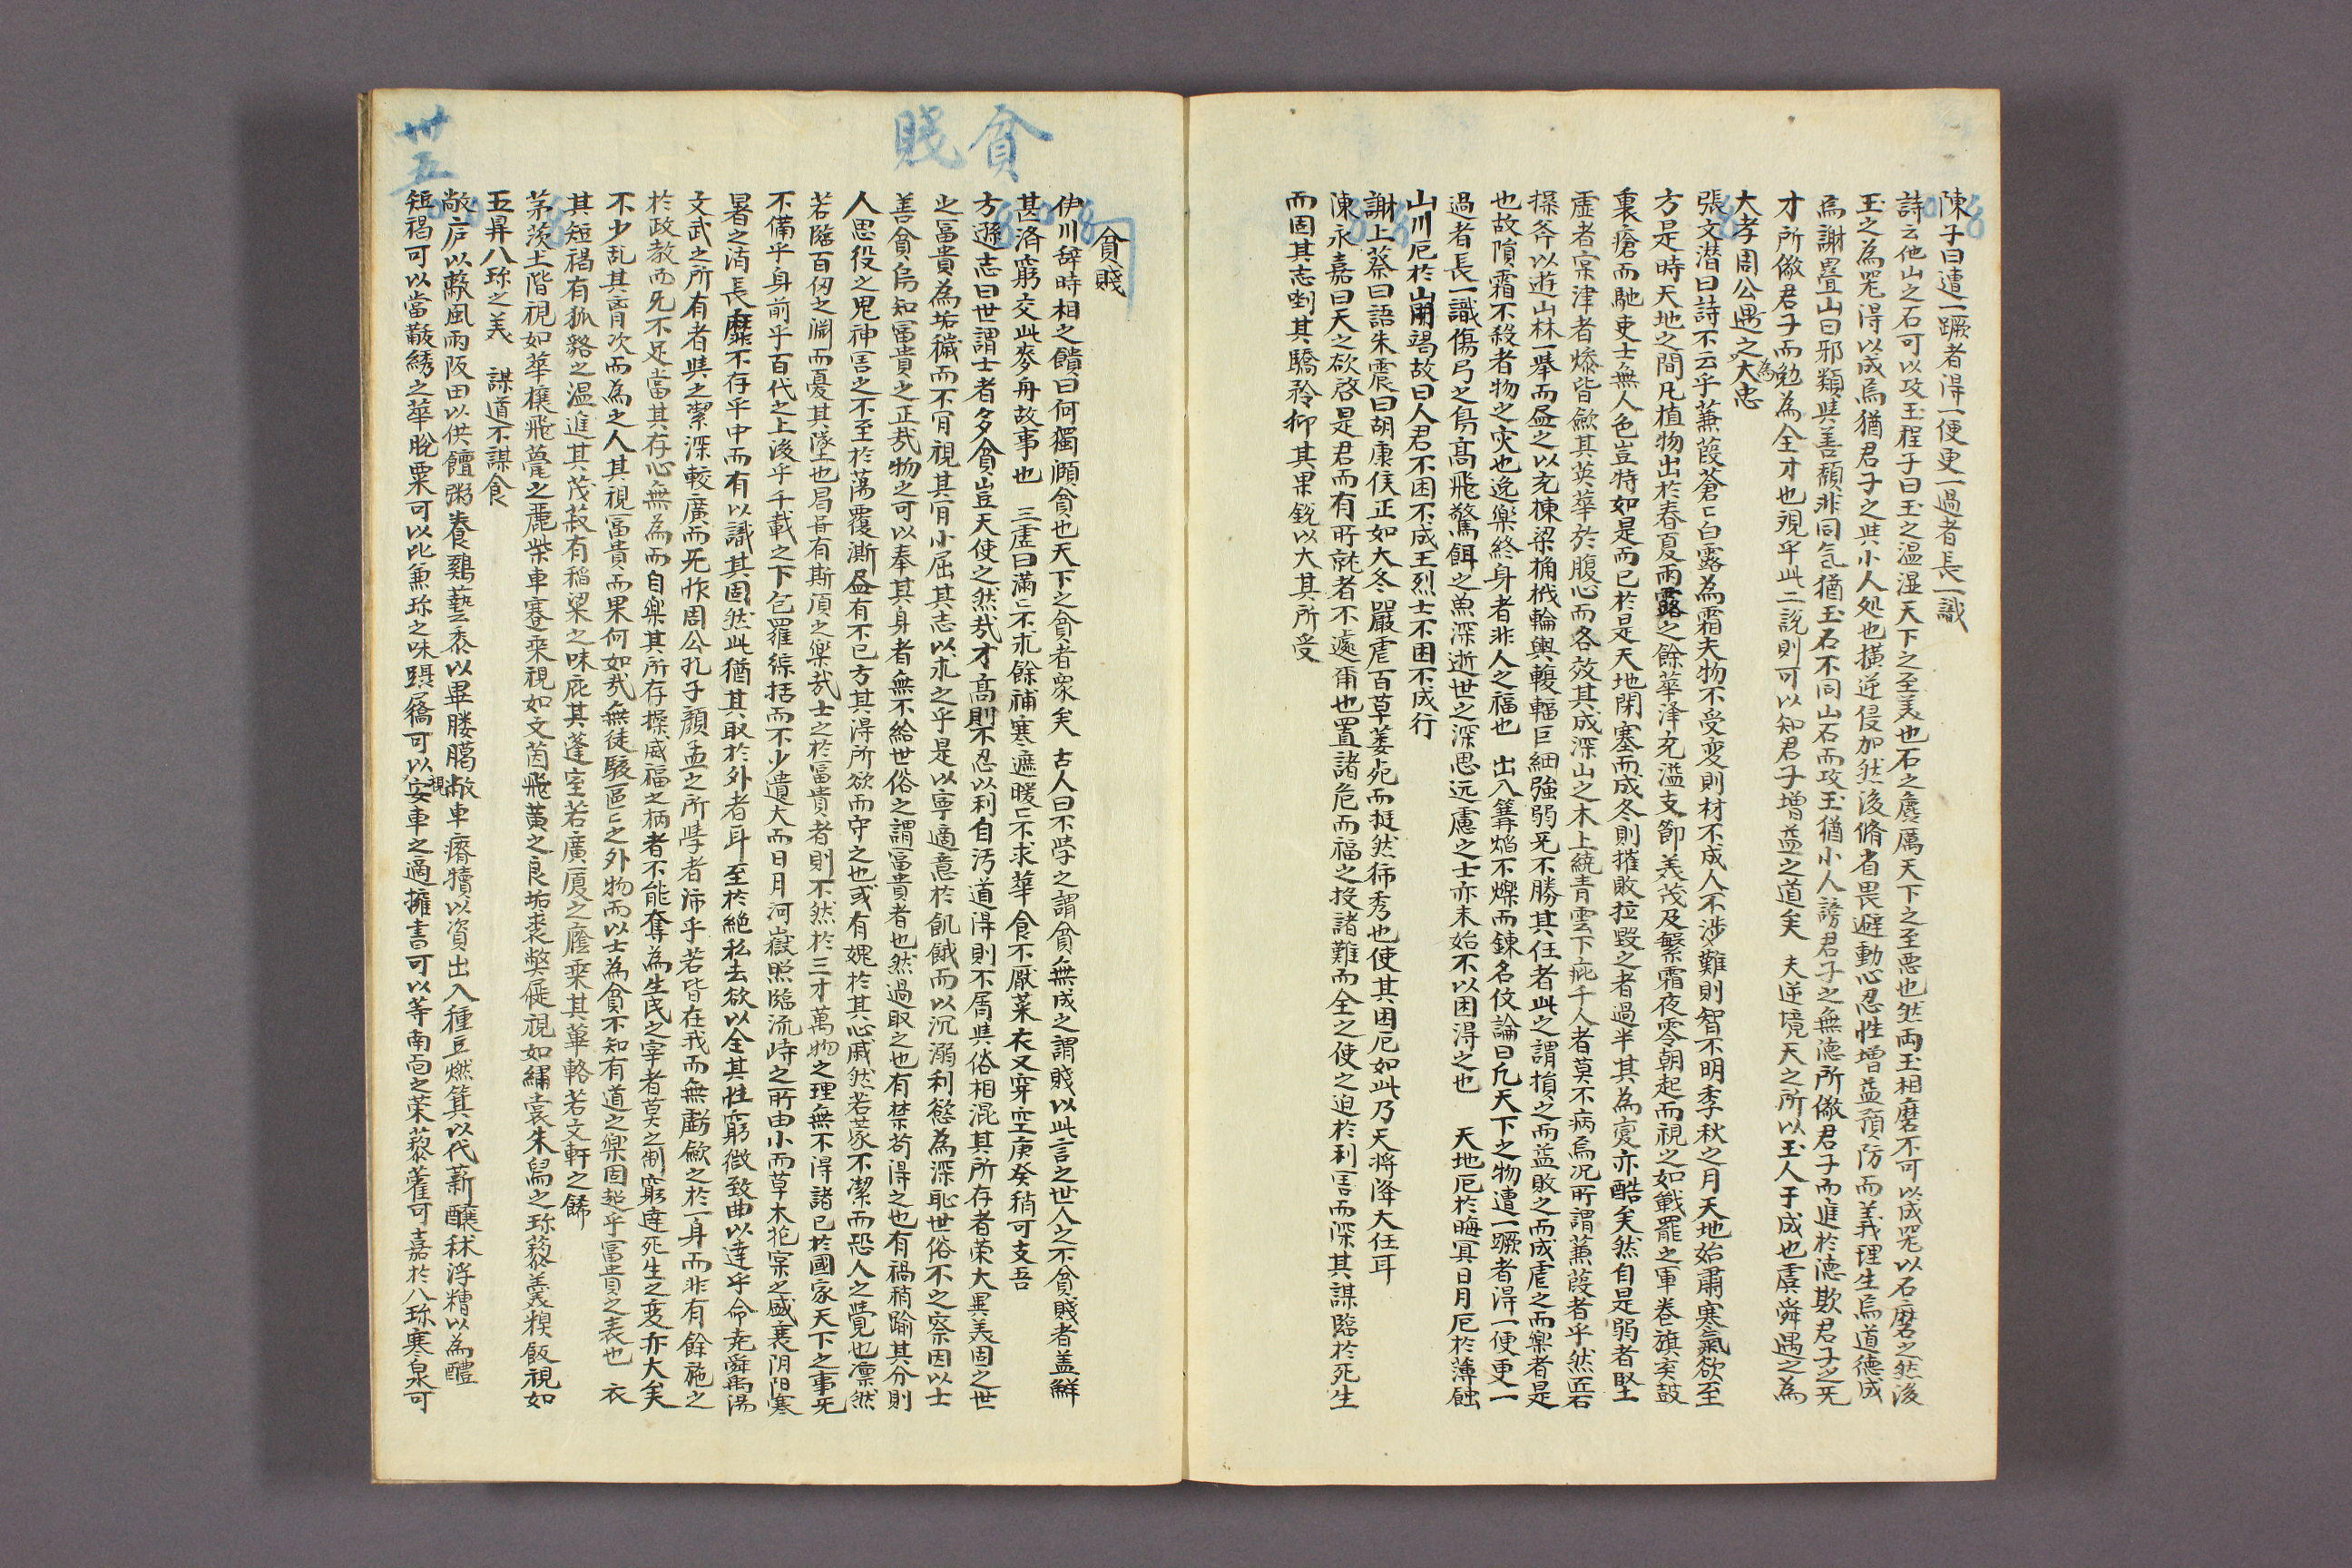 陳子曰遭一蹶者得一便更一過者長一識
詩云他山之石可以攻玉程子曰玉之温湿天下之至美也石之麁厲天下之至悪也然両玉相磨不可以成咒以石磨之然後
玉之為咒得以成焉猶君子之與小人処也横逆侵加然後脩省畏避動心忍性増益預防而義理生焉道徳成
焉謝疊山曰邪類與善類非同気猶玉石不同山石而攻玉猶小人謗君子之無徳所儆君子而進於徳欺君子之无
才所儆君子而勉為全才也覌乎此二説則可以知君子増益之道矣 夫逆境天之所以玉人于成也虞舜遇之為
大孝周公遇之為大忠
張文潜曰詩不云乎蒹葭蒼〻白露為霜夫物不受変則材不成人不渉難則智不明季秋之月天地始肅寒氣欲至
方是時天地之間凡植物出於春夏雨露之餘華泽充溢支節美茂及繁霜夜零朝起而視之如戦罷之軍巻旗棄鼓
裹瘡而馳吏士無人色豈特如是而已於是天地閉塞而成冬則摧敗拉毀之者過半其為変亦酷矣然自是弱者堅
虚者実津者燥皆歛其英華於腹心而各效其成深山之木上繞青雲下疵千人者莫不病焉况所謂蒹葭者乎然匠石
操斧以遊山林一挙而尽之以充棟梁桷杙輪輿輹輻巨細強弱无不勝其任者此之謂損之而益敗之而成虐之而樂者是
也故隕霜不殺者物之灾也逸樂終身者非人之福也 出八篝焔不爍而錬名伎論曰凡天下之物遭一蹶者得一便更一
過者長一識傷弓之鳥髙飛驚餌之魚深逝世之深思远慮之士亦未始不以困得之也 天地厄於晦冥日月厄於薄蝕
山川厄於山崩竭故曰人君不困不成王烈士不困不成行
謝上蔡曰語朱震曰胡康侯正如大冬嚴虐百草萎死而挺然独秀也使其困厄如此乃天将降大任耳
陳永嘉曰天之欲啓是君而有所就者不遽爾也置諸危而福之投諸難而全之使之迫於利害而深其謀臨於死生
而固其志剉其驕矜抑其果鋭以大其所受
貧賤
貧賤
伊川辞時相之饋曰何獨顾貧也天下之貧者衆矣 古人曰不学之謂貧無成之謂賤以此言之世人之不貧賤者盖鮮
甚済窮交此麥舟故事也 三虚曰満〻不求餘補寒遮暖〻不求華食不厭菜衣又穿空庚癸稍可支吾
方遜志曰世謂士者多貧豈天使之然哉才髙則不忍以利自汚道得則不屑與俗相混其所存者榮大異美固之世
之冨貴為垢穢而不肎視其肎小屈其志以求之乎是以寧適意於飢餓而以沉溺利慾為深恥世俗不之察因以士
善貧烏知冨貴之正哉物之可以奉其身者無不給世俗之謂冨貴者也然過取之也有禁苟得之也有禍稍踰其分則
人思役之鬼神害之不至於蕩覆澌尽有不已方其得所欲而守之也或有媿於其心戚然若蒙不潔而恐人之覺也凛然
若臨百仭之淵而憂其墜也曷甞有斯湏之樂哉士之於冨貴者則不然於三才萬物之理無不得諸已於國家天下之事无
不備乎身前乎百代之上後乎千載之下包羅綜括而不少遺大而日月河嶽照臨流峙之所由小而草木花実之盛衰阴阳寒
暑之消長靡不存乎中而有以識其固然此猶其取於外者耳至於絶私去欲以全其性窮微致曲以達乎命尭舜禹湯
文武之所有者與之絜深較廣而无怍周公孔子顏孟之所学者沛乎若皆在我而無虧歛之於一身而非有餘施之
於政教而死不足當其存心無為而自樂其所存操威福之柄者不能奪為生民之宰者莫之制窮達死生之変亦大矣
不少乱其胷次而為之人其視冨貴而果何如哉無徒駭區〻之外物而以士為貧不知有道之樂固超乎冨貴之表也 衣
其短褐有狐貉之温進其茂菽有稲梁之味庇其蓬室若廣厦之廕乗其蓽輅若文軒之飾
茅茨土階視如華榱飛甍之麗柴車蹇乗視如文茵飛黄之良垢裘弊屣視如繡裳朱舄之珎藜羹糗飯視如
五昇八珎之美 謀道不謀食
敝庐以蔽風雨阪田以供饘粥養鷄藝黍以畢膢臈敝車瘠犢以資出入種豆燃箕以代薪醸秫浮糟以為醴
短褐可以當黻綉之華脱粟可以比兼珎之味蹑屩可以視安車之適擁書可以等南面之榮藜藿可嘉於八珎寒泉可
卅五